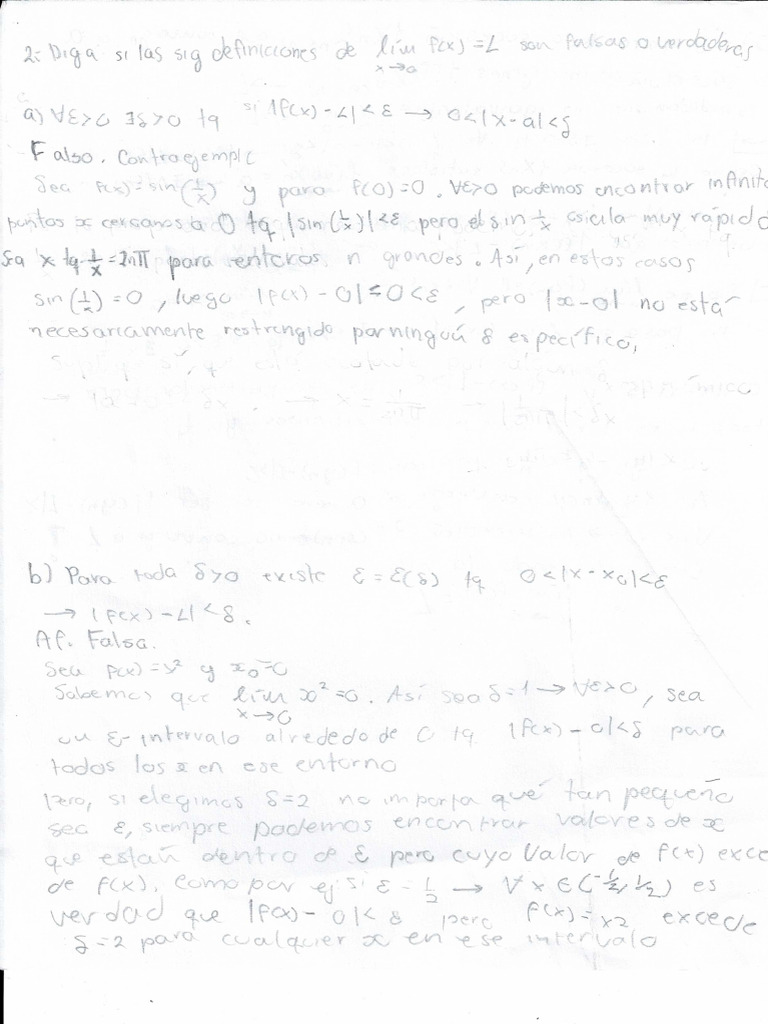 2.- Diga si las sig definiciones de lim f(x) = L son falsas o verdaderas
x→a
a) ∀ε>0 ∃δ>0 tq si |f(x) - L| < ε → 0<|x-a|<δ
Falso. Contraejemplo
Sea f(x)=sin(1/x) y para f(0)=0. ∀ε>0 podemos encontrar infinito
puntos x cercanos a 0 tq |sin(1/x)|<ε pero el sin 1/x oscila muy rápido
Sea x tq 1/x = 2nπ para enteros n grandes. Así, en estos casos
sin(1/x) = 0, luego |f(x) - 0| ≤ 0 < ε, pero |x-0| no está
necesariamente restrengido por ningún δ específico,
b) Para toda δ>0 existe ε = ε(δ) tq 0<|x-x₀|<ε
→ |f(x) - L| < δ.
Af. Falsa.
Sea f(x) = x² y x₀=0
Sabemos que lim x²=0. Así sea δ=1 → ∀ε>0, sea
x→0
un ε-intervalo alrededo de 0 tq |f(x) - 0|<δ para
todos los x en ese entorno
Pero, si elegimos δ=2 no importa qué tan pequeño
sea ε, siempre podemos encontrar valores de x
que están dentro de ε pero cuyo valor de f(x) exce
de f(x). Como por ej si ε = 1/2 → ∀x∈(-1/2, 1/2) es
verdad que |f(x) - 0| < δ pero f(x) = x2 excede
δ=2 para cualquier x en ese intervalo